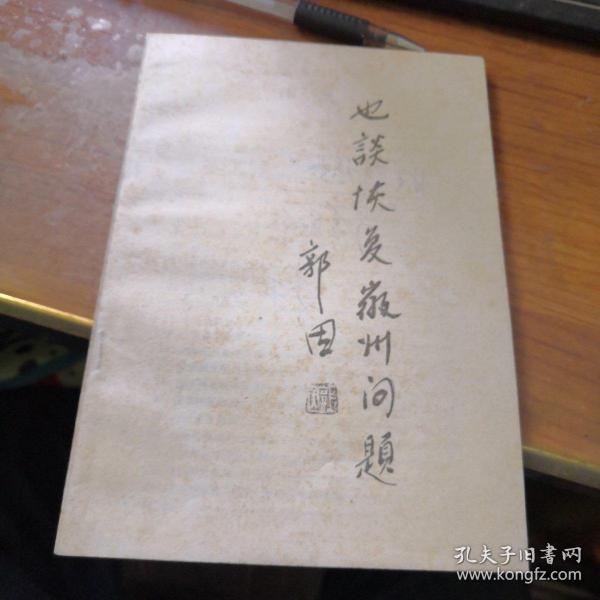 也談恢复徽州问題
郭因
孔夫子旧書网
www.kongfz.com